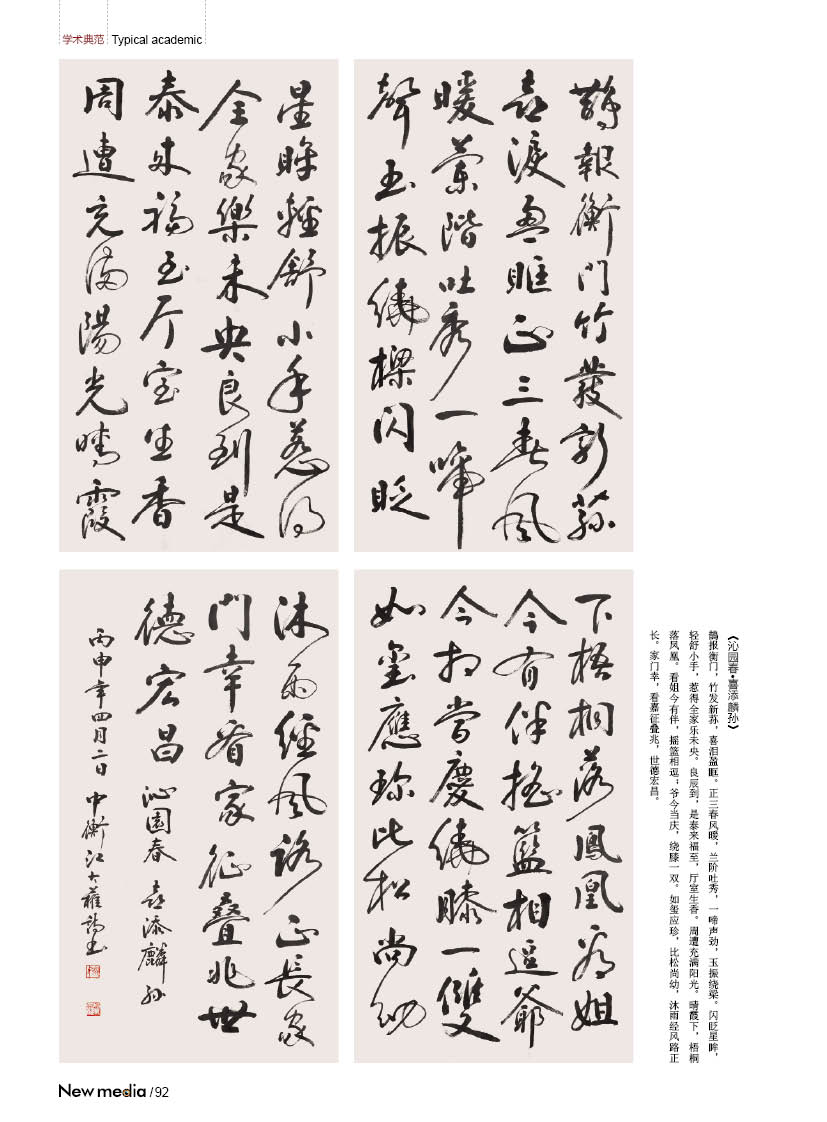 学术典范 Typical academic
鵲報衡門竹發新蓀
喜淚盈眶正三春風
暖蘭階吐秀一啼
聲玉振繞樑閃眨
星眸輕舒小手惹得
全家樂未央良到是
泰来福至厅室生香
周遭充滿陽光晴霞
下梧桐落鳳凰看姐
今有伴搖籃相逗爺
今當慶繞膝一雙
如璽應珍比松尚幼
沐雨經風路正長家
門幸看家征叠兆世
德宏昌 沁園春 喜添麟孫
丙申年四月二日中衡江大
《沁园春·喜添麟孙》
鹊报衡门，竹发新荪，喜泪盈眶。正三春风暖，兰阶吐秀，一啼声劲，玉振绕梁。闪眨星眸，
轻舒小手，惹得全家乐未央。良辰到，是泰来福至，厅室生香。周遭充满阳光。晴霞下，梧桐
落凤凰。看姐今有伴，摇篮相逗；爷今当庆，绕膝一双。如玺应珍，比松尚幼，沐雨经风路正
长。家门幸，看嘉征叠兆，世德宏昌。
New media /92